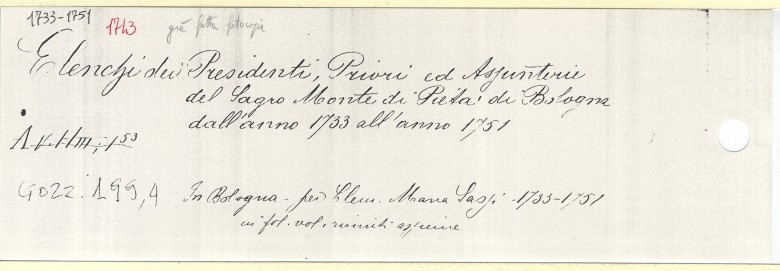 1733-1751
1743 già fatta fotocopia
Elenchi dei Presidenti, Priori ed Assunterie
del Sagro Monte di Pietà di Bologna
dall'anno 1733 all'anno 1751
A.V.H.III, 1 53
GOZZ. 199,4 In Bologna - per Clem. Maria Sassi - 1733-1751
in fol. vol. riuniti assieme